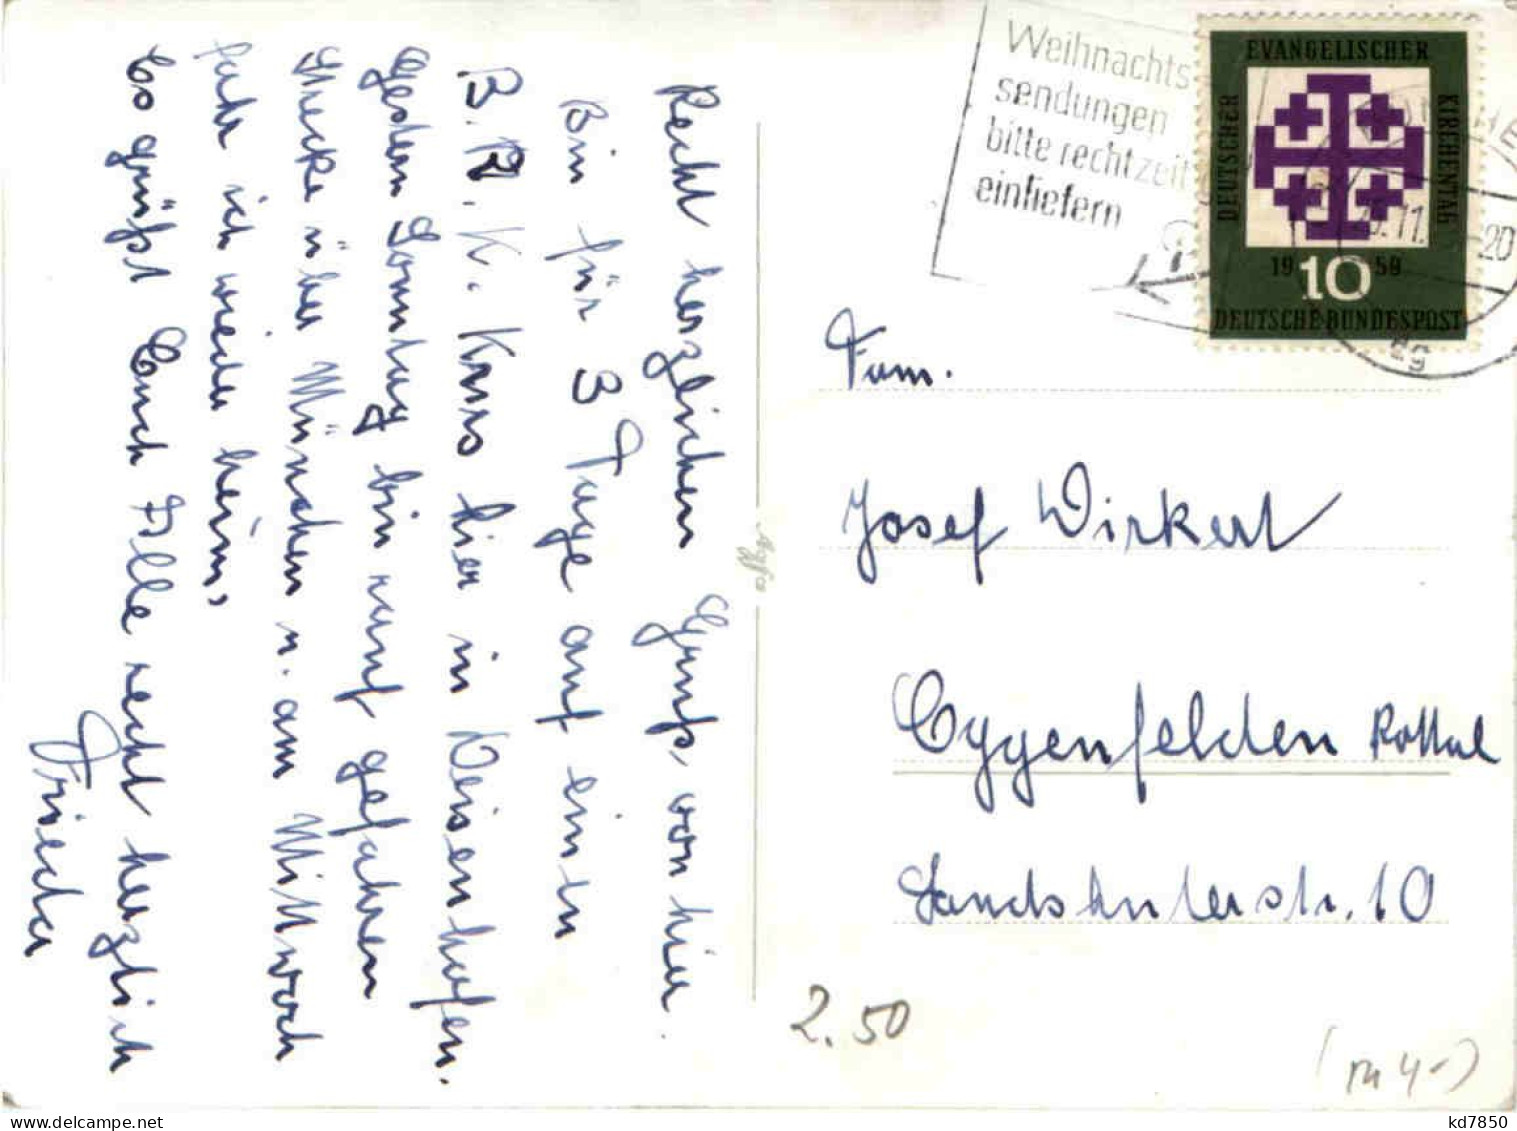 Recht herzlichen Gruß, von hier.
Bin für 3 Tage auf ein
B. R. K. Kurs hier in Deisenhofen.
Gestern Sonntag bin rauf gefahren
Strecke über München u. am Mittwoch
fahr ich wieder heim,
Es grüßt Euch Alle recht herzlich
Frieda
Weihnachts
sendungen
bitte rechtzeit
einliefern
EVANGELISCHER
DEUTSCHER
KIRCHENTAG
19 59
10
DEUTSCHE BUNDESPOST
.11.
20
Fam.
Josef Wirkert
Eggenfelden Rottal
Landshuterstr. 10
Agfa
2.50
kd7850